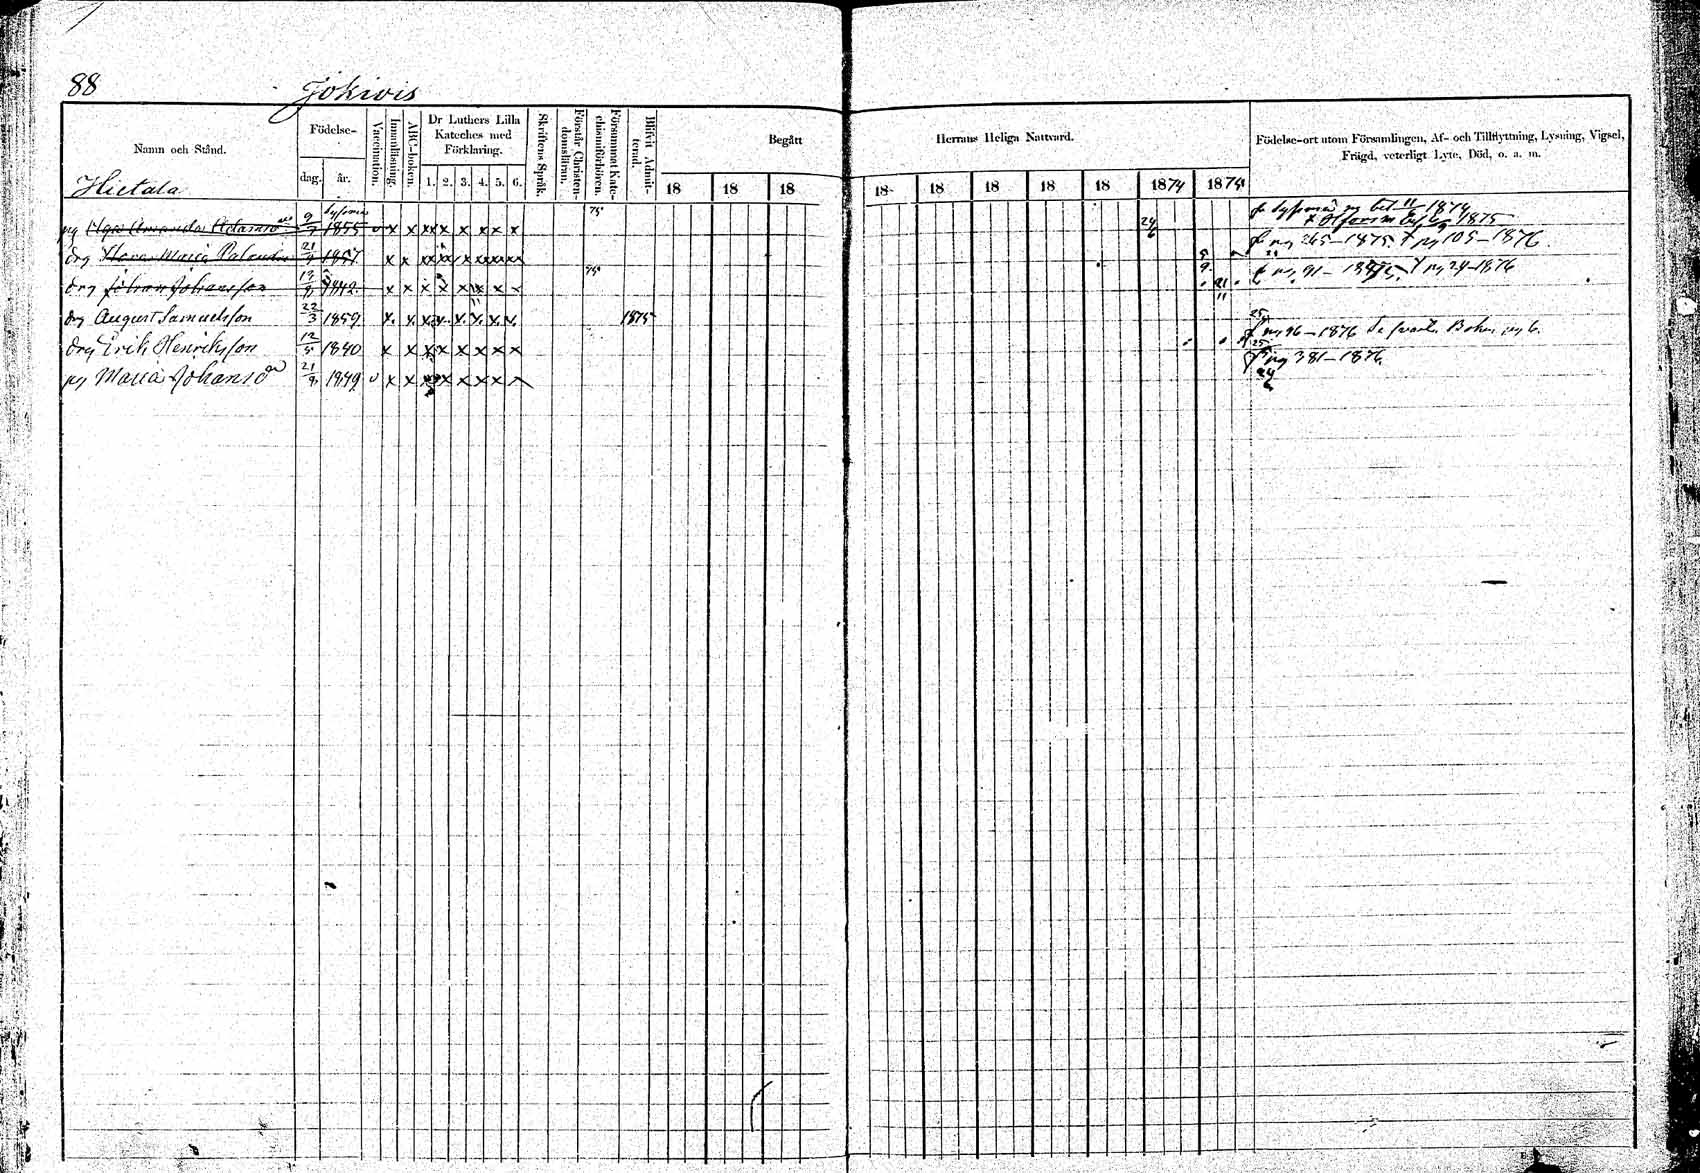 88 Jokivis
Namn och Stånd. Födelse- dag. år. Vaccination. Innanläsning. ABC-boken. Dr Luthers Lilla Kateches med Förklaring. 1. 2. 3. 4. 5. 6. Skriftens Språk. Förstår Christendomsläran. Försummat Katechismiförhören. Blifvit Admitterad. Begått Herrans Heliga Nattvard. Födelse-ort utom Församlingen, Af- och Tillflyttning, Lysning, Vigsel, Frägd, veterligt Lyte, Död, o. a. m.
Hietala 18 18 18 18 18 18 18 18 1874 1875
pg Olga Amanda Adamsd 9/7 1855 v x x xx x x x x x 75 24/6 1874 1875
drg Maria 21 1857 x x 265-1875 pg 105-1876
drg Johan Johansson 19/9 1842 x x x x x x x x 75 21/11 pg 91- pg 24-1876
drg August Samuelsson 22/3 1859 x x x x x x x x 1875
drg Erik Henriksson 12/5 1840 x x x x x x x x pg 96-1876 Se Boken pg 6.
pg Maria Johansdr 21/9 1849 v x x x x x x x pg 381-1876